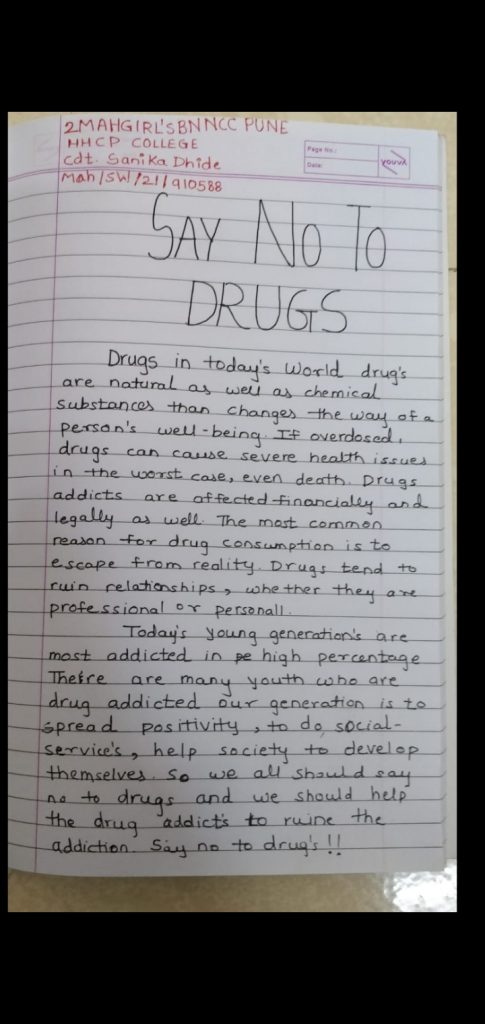 2MAHGIRL'SBNNCC PUNE
HHCP COLLEGE
Cdt. Sanika Dhide
Mah/SW/21/910588
Page No.:
Date:
YOUVA
SAY NO TO
DRUGS
Drugs in today's world drug's
are natural as well as chemical
substances than changes the way of a
person's well-being. If overdosed,
drugs can cause severe health issues
in the worst case, even death. Drugs
addicts are affected financially and
legally as well. The most common
reason for drug consumption is to
escape from reality. Drugs tend to
ruin relationships, whether they are
professional or personall.
Today's young generation's are
most addicted in high percentage
Theire are many youth who are
drug addicted our generation is to
spread positivity, to do social-
service's, help society to develop
themselves. So we all should say
no to drugs and we should help
the drug addict's to ruine the
addiction. Say no to drug's !!